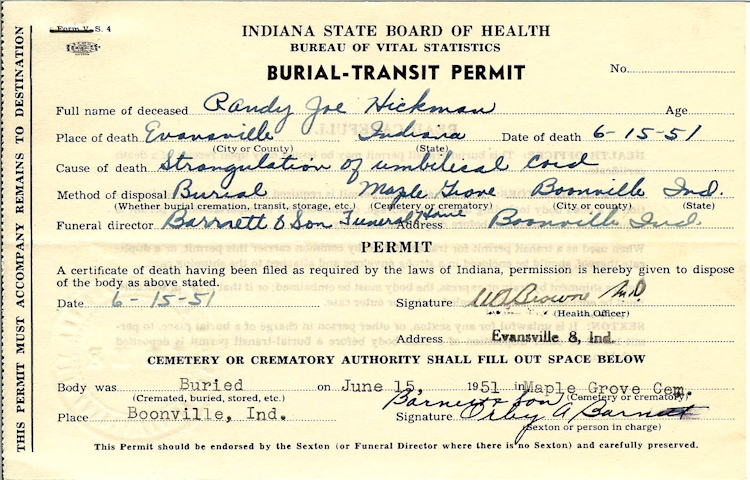 Form V. S. 4
INDIANA STATE BOARD OF HEALTH
BUREAU OF VITAL STATISTICS
BURIAL-TRANSIT PERMIT
No.
Full name of deceased Randy Joe Hickman Age
Place of death Evansville Indiana Date of death 6-15-51
(City or County) (State)
Cause of death Strangulation of umbilical cord
Method of disposal Burial Maple Grove Boonville Ind.
(Whether burial cremation, transit, storage, etc.) (Cemetery or crematory) (City or county) (State)
Funeral director Barrnett & Son Funeral Home Address Boonville Ind
PERMIT
A certificate of death having been filed as required by the laws of Indiana, permission is hereby given to dispose
of the body as above stated.
Date 6-15-51 Signature Browne M.D.
(Health Officer)
Address Evansville 8, Ind.
CEMETERY OR CREMATORY AUTHORITY SHALL FILL OUT SPACE BELOW
Body was Buried on June 15, 1951 in Maple Grove Cem.
(Cremated, buried, stored, etc.) (Cemetery or crematory)
Barnett & Son
Place Boonville, Ind. Signature Orby A Barnett
(Sexton or person in charge)
This Permit should be endorsed by the Sexton (or Funeral Director where there is no Sexton) and carefully preserved.
THIS PERMIT MUST ACCOMPANY REMAINS TO DESTINATION